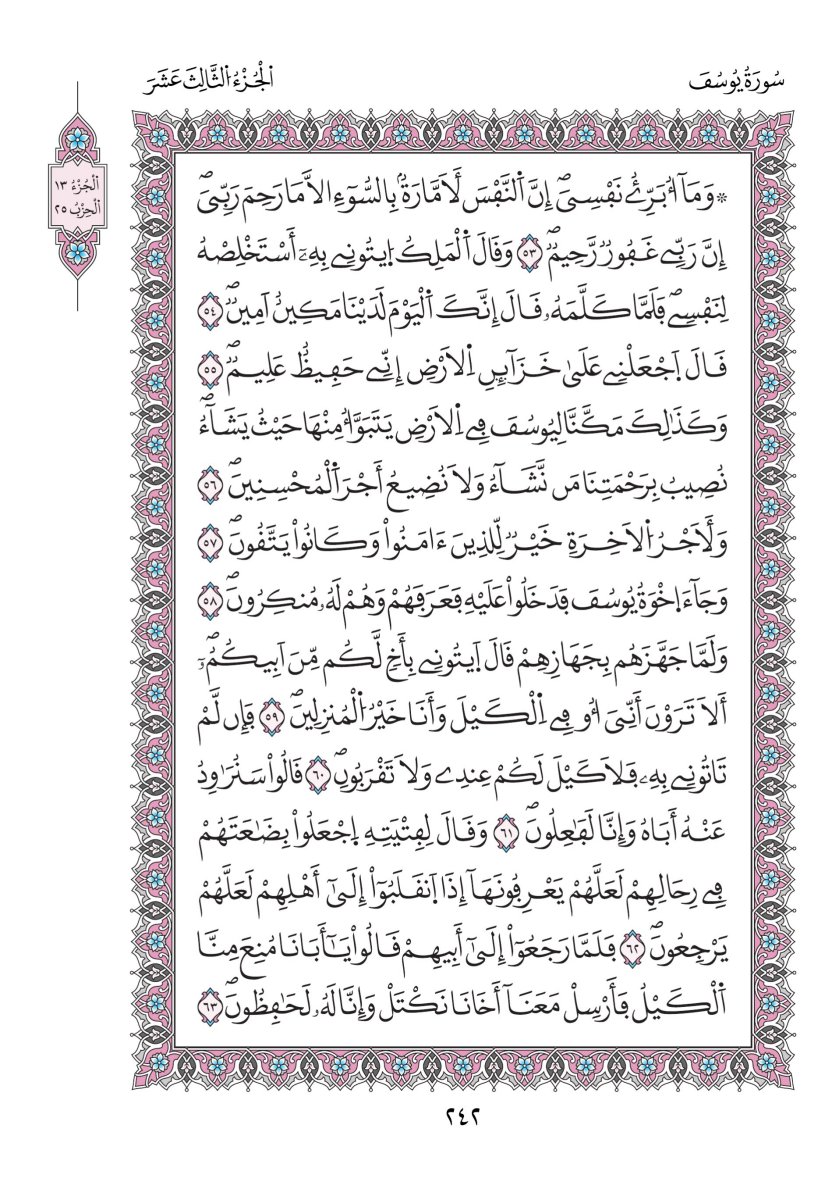 سُورَةُ يُوسُفَ
اَ۬لْجُزْءُ اُ۬لثَّالِثَ عَشَرَ
اَ۬لْجُزْءُ ١٣
اَ۬لْحِزْبُ ٢٥
۞وَمَآ أُبَرِّۓُ نَفْسِيَۖ إِنَّ اَ۬لنَّفْسَ لَأَمَّارَةُۢ بِالسُّوٓءِ الَّا مَا رَحِمَ رَبِّيَۖ
إِنَّ رَبِّے غَفُورٞ رَّحِيمٞۖ ٥٣ وَقَالَ اَ۬لْمَلِكُ اُ۪يتُونِے بِهِۦٓ أَسْتَخْلِصْهُ
لِنَفْسِےۖ فَلَمَّا كَلَّمَهُۥ قَالَ إِنَّكَ اَ۬لْيَوْمَ لَدَيْنَا مَكِينٌ اَمِينٞۖ ٥٤
قَالَ اَ۪جْعَلْنِے عَلَىٰ خَزَآئِنِ اِ۬لَارْضِ إِنِّے حَفِيظٌ عَلِيمٞۖ ٥٥
وَكَذَٰلِكَ مَكَّنَّا لِيُوسُفَ فِے اِ۬لَارْضِ يَتَبَوَّأُ مِنْهَا حَيْثُ يَشَآءُۖ
نُصِيبُ بِرَحْمَتِنَا مَن نَّشَآءُ وَلَا نُضِيعُ أَجْرَ اَ۬لْمُحْسِنِينَۖ ٥٦
وَلَأَجْرُ اُ۬لَاخِرَةِ خَيْرٞ لِّلذِينَ ءَامَنُواْ وَكَانُواْ يَتَّقُونَۖ ٥٧
وَجَآءَ اِ۪خْوَةُ يُوسُفَ فَدَخَلُواْ عَلَيْهِ فَعَرَفَهُمْ وَهُمْ لَهُۥ مُنكِرُونَۖ ٥٨
وَلَمَّا جَهَّزَهُم بِجَهَازِهِمْ قَالَ اَ۪يتُونِے بِأَخٖ لَّكُم مِّنَ اَبِيكُمُۥٓۖ
أَلَا تَرَوْنَ أَنِّيَ أُوفِے اِ۬لْكَيْلَ وَأَنَا خَيْرُ اُ۬لْمُنزِلِينَۖ ٥٩ فَإِن لَّمْ
تَاتُونِے بِهِۦ فَلَا كَيْلَ لَكُمْ عِندِے وَلَا تَقْرَبُونِۖ ٦٠ قَالُواْ سَنُرَٰوِدُ
عَنْهُ أَبَاهُ وَإِنَّا لَفَٰعِلُونَۖ ٦١ وَقَالَ لِفِتْيَتِهِ اِ۪جْعَلُواْ بِضَٰعَتَهُمْ
فِے رِحَالِهِمْ لَعَلَّهُمْ يَعْرِفُونَهَآ إِذَا اَ۪نقَلَبُوٓاْ إِلَىٰٓ أَهْلِهِمْ لَعَلَّهُمْ
يَرْجِعُونَۖ ٦٢ فَلَمَّا رَجَعُوٓاْ إِلَىٰٓ أَبِيهِمْ قَالُواْ يَٰٓأَبَانَا مُنِعَ مِنَّا
اَ۬لْكَيْلُ فَأَرْسِلْ مَعَنَآ أَخَانَا نَكْتَلْ وَإِنَّا لَهُۥ لَحَٰفِظُونَۖ ٦٣
٢٤٢